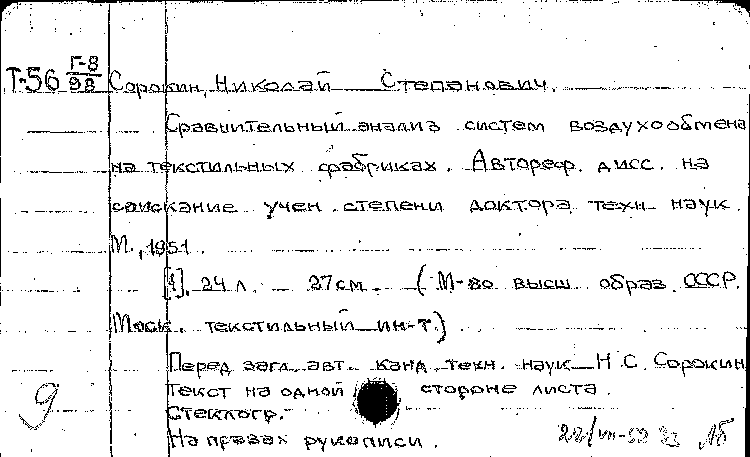 Т-56 Г-8/98 Сорокин, Николай Степанович.
Сравнительный анализ систем воздухообмена
на текстильных фабриках. Автореф. дисс. на
соискание учен. степени доктора техн. наук.
М., 1951.
[1], 24 л. 27 см. (М-во высш. образ. СССР.
Моск. текстильный ин-т.)
Перед загл. авт. канд. техн. наук Н.С. Сорокин
Текст на одной стороне листа.
Стеклогр.
На правах рукописи.
9